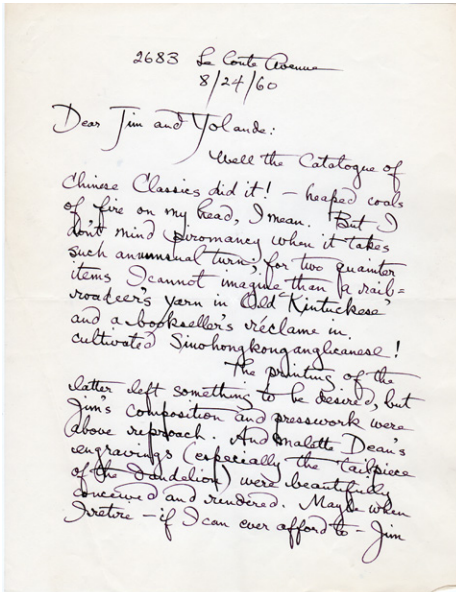 2683 Le Conte Avenue
8/24/60
Dear Jim and Yolande:
Well the Catalogue of
Chinese Classics did it! – heaped coals
of fire on my head, I mean. But I
don't mind piromancy when it takes
such an unusual turn; for two quainter
items I cannot imagine than a rail=
roadeer's yarn in Old Kintuckese
and a bookseller's réclame in
cultivated Sinohongkonganglicanese!
The printing of the
latter left something to be desired, but
Jim's composition and presswork were
above reproach. And Malette Dean's
engravings (especially the tailpiece
of the dandelion) were beautifully
conceived and rendered. Maybe when
I retire – if I can ever afford to – Jim